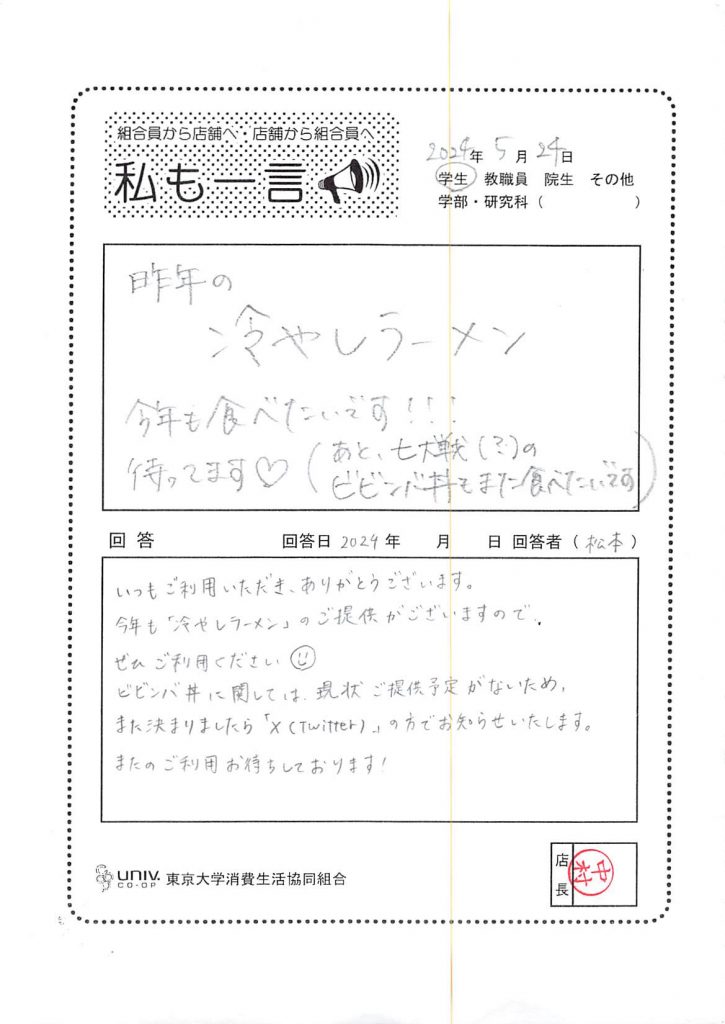 組合員から店舗へ・店舗から組合員へ
私も一言
2024年 5月 24日
学生 教職員 院生 その他
学部・研究科（ ）
昨年の
冷やしラーメン
今年も食べたいです！！！
待ってます♡（あと、七大戦（？）の
ビビンバ丼もまた食べたいです）
回答 回答日 2024年 月 日 回答者（松本）
いつもご利用いただき、ありがとうございます。
今年も「冷やしラーメン」のご提供がございますので、
ぜひご利用ください☺
ビビンバ丼に関しては、現状ご提供予定がないため、
また決まりましたら「X(Twitter)」の方でお知らせいたします。
またのご利用お待ちしております！
UNIV. CO-OP 東京大学消費生活協同組合
店長 中村